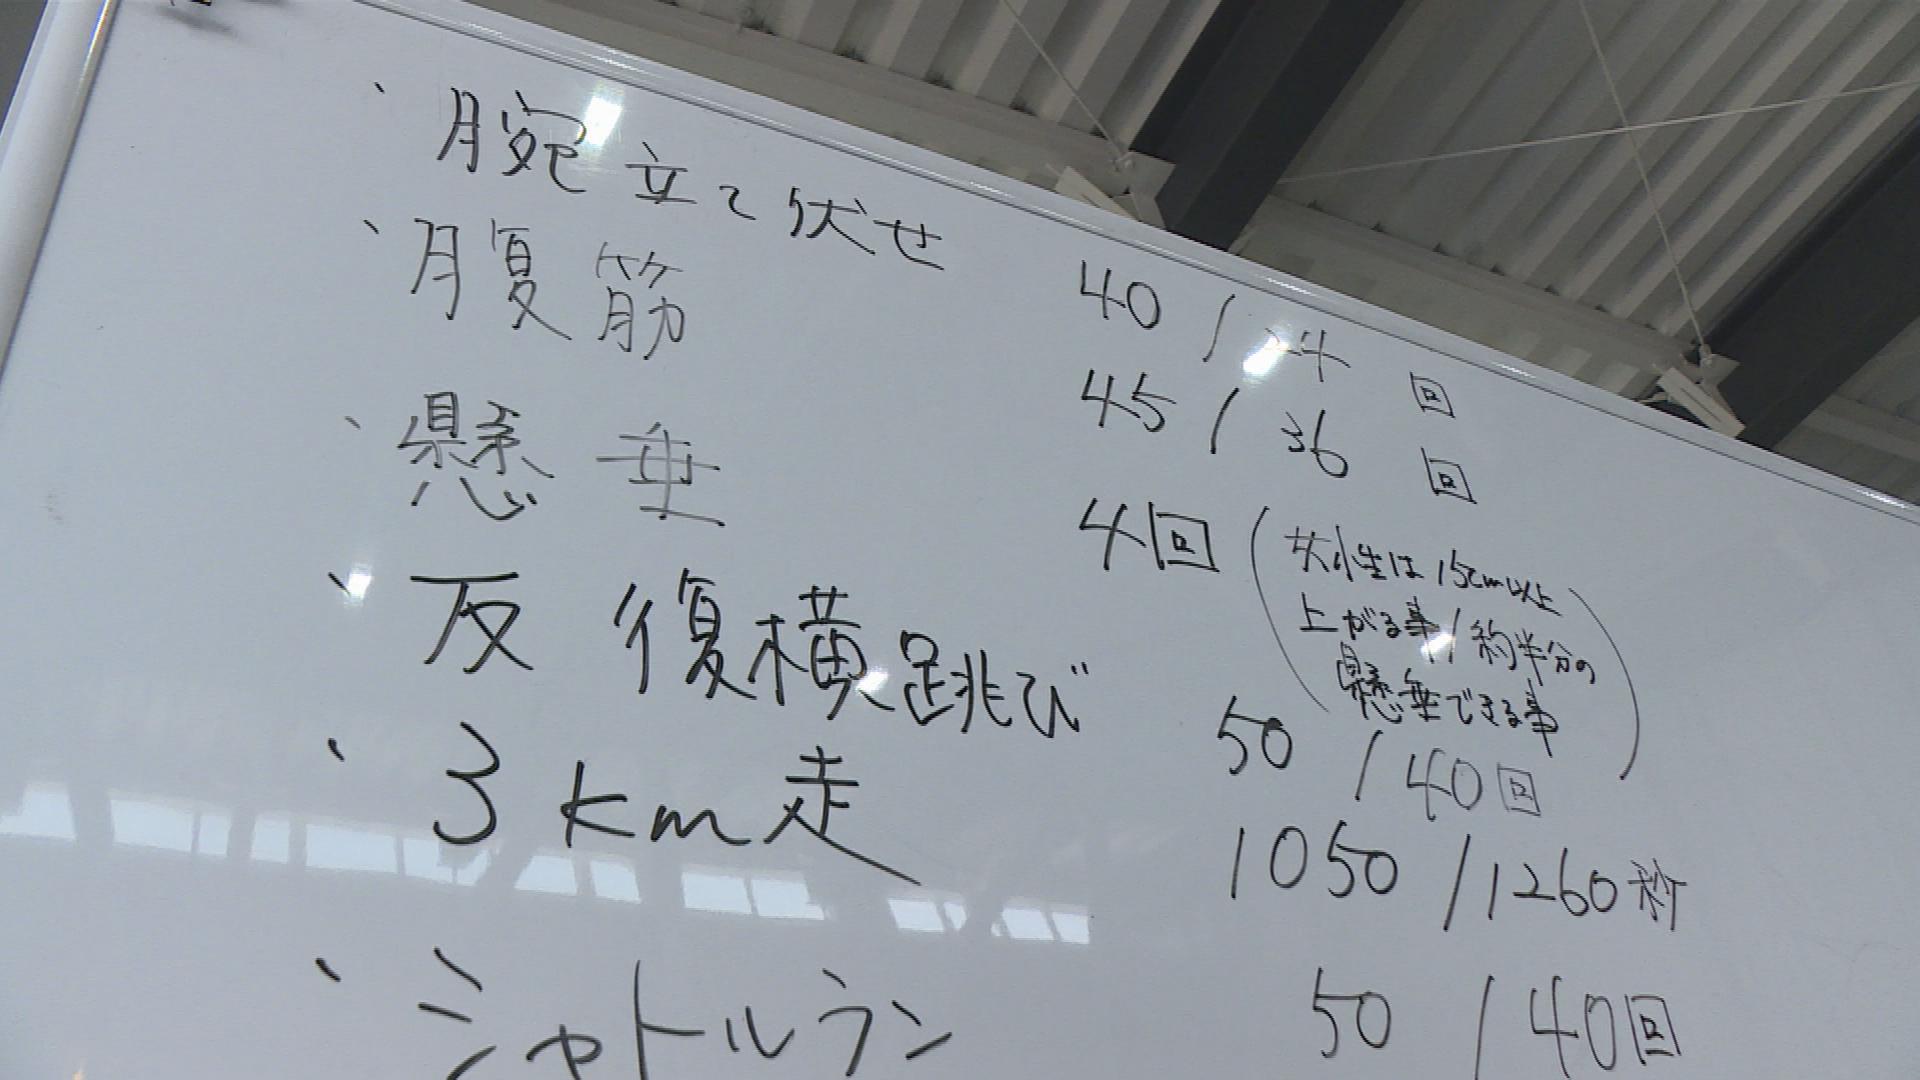 ・腕立て伏せ 40 / 回
・腹筋 45 / 36 回
・懸垂 4回 (女性は15cm以上
上がる事/約半分の
懸垂できる事)
・反復横跳び 50 / 40回
・3km走 1050 / 1260秒
・シャトルラン 50 / 40回